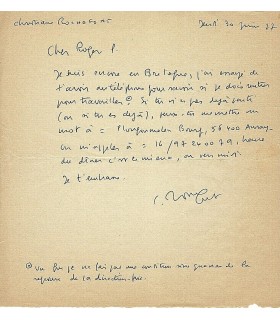 Christiane Rochefort Jeudi 30 juin 77
Cher Roger P.
Je suis encore en Bretagne, j'ai essayé de
t'avoir au téléphone pour savoir si je dois rentrer
pour travailler ⊕ Si tu n'es pas déjà parti
(ou si tu es déjà), peux-tu me mettre un
mot à = Plougoumelen Bourg, 56 400 Auray
ou m'appeler à = 16 / 97 24 00 79, heure
du dîner c'est le mieux, ou vers midi
Je t'embrasse
C. Rochefort
⊕ Vu que je ne fais pas une
de la